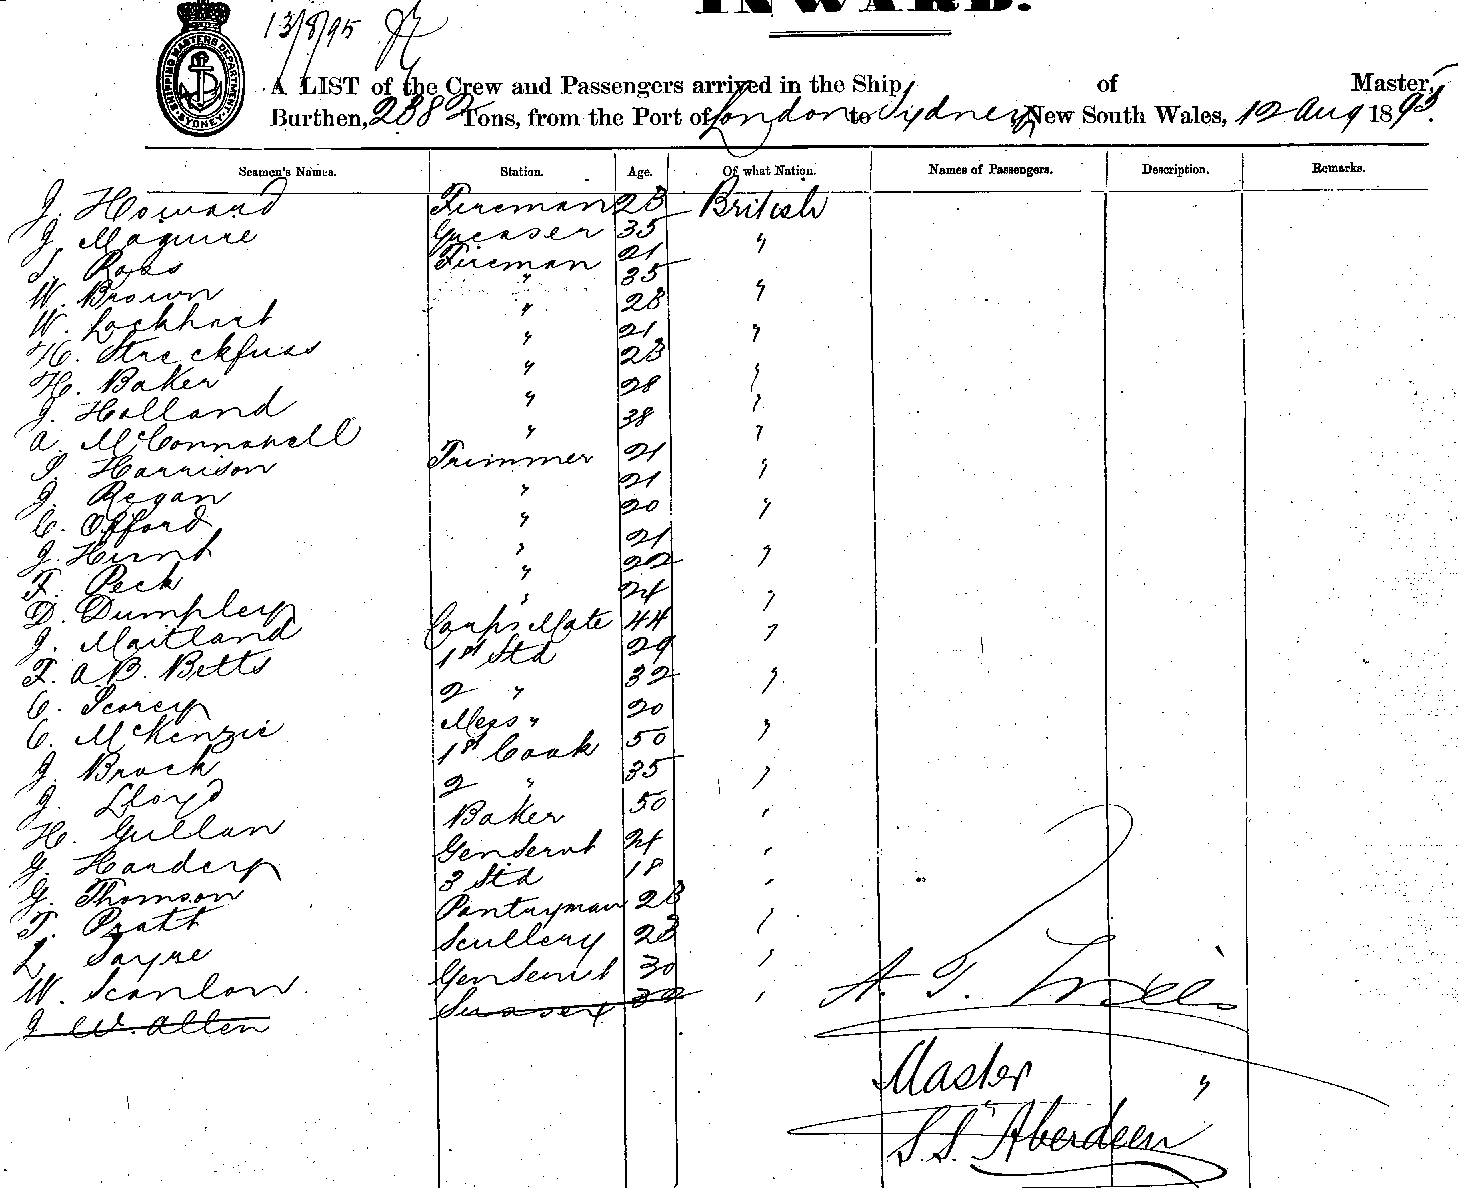 13/8/95
INWARD.
SHIPPING MASTERS DEPARTMENT SYDNEY
A LIST of the Crew and Passengers arrived in the Ship of Master,
Burthen, 2382 Tons, from the Port of London to Sydney New South Wales, 12 Aug 1895.
Seamen's Names. Station. Age. Of what Nation. Names of Passengers. Description. Remarks.
J. Howard Fireman 28 British
J. Maguire Greaser 35 "
Ross Fireman 21
W. Brown " 35 "
W. Lockhart " 28
H. Streckfuss " 21 "
H. Baker " 28
J. Holland " 28 "
A. McConnahell " 38 "
S. Harrison Trimmer 21 "
J. Regan " 21
C. Offord " 20 "
J. Hunt " 21
F. Peck " 22 "
D. Dumpley " 24
J. Maitland Capts Mate 44 "
F. A. B. Betts 1st Std 29 "
C. Scorey 2 " 32 "
C. McKenzie Mess " 20
J. Brock 1st Cook 50 "
J. Lloyd 2 " 35 "
H. Gullan Baker 50 "
G. Hardey Gen Servt 24 "
G. Thomson 3 Std 18 "
T. Pratt Pantryman 28 "
L. Sayre Scullery 28 "
W. Scanlon Gen Servt 30 "
J W. Allen Sussex 32
A. T.
Master "
S.S. "Aberdeen